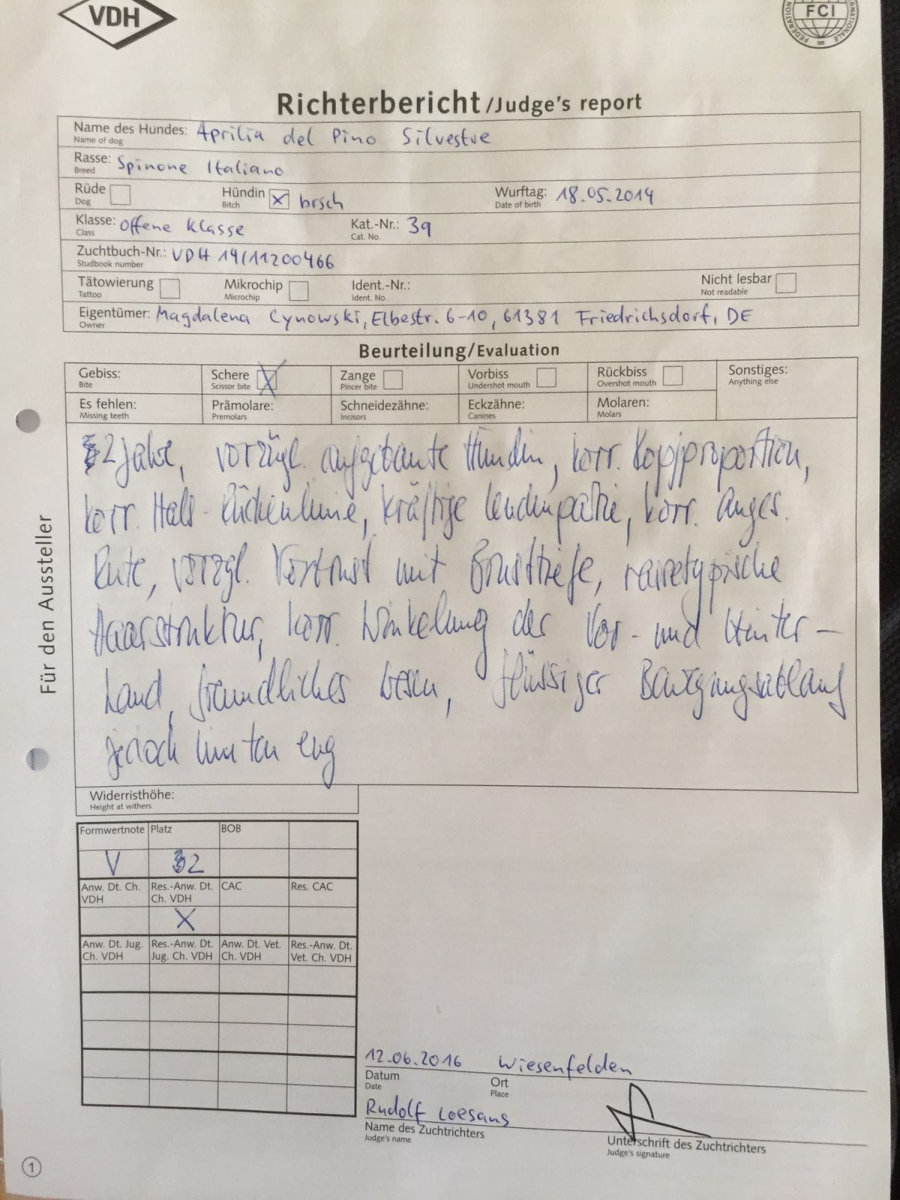 VDH
FCI
Richterbericht /Judge's report
Name des Hundes: Aprilia del Pino Silvestre
Name of dog
Rasse: Spinone Italiano
Breed
Rüde Hündin X brsch Wurftag: 18.05.2014
Dog Bitch Date of birth
Klasse: offene Klasse Kat.-Nr.: 39
Class Cat. No.
Zuchtbuch-Nr.: VDH 14/11200466
Studbook number
Tätowierung Mikrochip Ident.-Nr.: Nicht lesbar
Tattoo Microchip Ident. No. Not readable
Eigentümer: Magdalena Cynowski, Elbestr. 6-10, 61381 Friedrichsdorf, DE
Owner
Beurteilung/Evaluation
Gebiss: Schere X Zange Vorbiss Rückbiss Sonstiges:
Bite Scissor bite Pincer bite Undershot mouth Overshot mouth Anything else
Es fehlen: Prämolare: Schneidezähne: Eckzähne: Molaren:
Missing teeth Premolars Incisors Canines Molars
2 Jahre, vorzügl. aufgebaute Hündin, korr. Kopfproportion,
korr. Hals-Rückenlinie, kräftige Lendenpartie, korr. anges.
Rute, vorzgl. Vorbrust mit Brusttiefe, rassetypische
Haarstruktur, korr. Winkelung der Vor- und Hinter-
hand, freundliches Wesen, flüssiger Bewegungsablauf
jedoch hinten eng
Für den Aussteller
Widerristhöhe:
Height at withers
Formwertnote Platz BOB
V 2
Anw. Dt. Ch. VDH Res.-Anw. Dt. Ch. VDH CAC Res. CAC
X
Anw. Dt. Jug. Ch. VDH Res.-Anw. Dt. Jug. Ch. VDH Anw. Dt. Vet. Ch. VDH Res.-Anw. Dt. Vet. Ch. VDH
12.06.2016 Wiesenfelden
Datum Ort
Date Place
Rudolf
Name des Zuchtrichters Unterschrift des Zuchtrichters
Judge's name Judge's signature
1